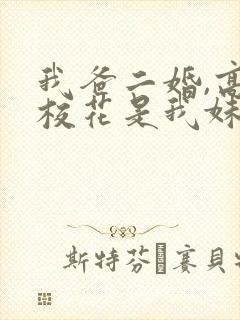 我爸二婚,高
校花是我妹
斯特芬·賽貝